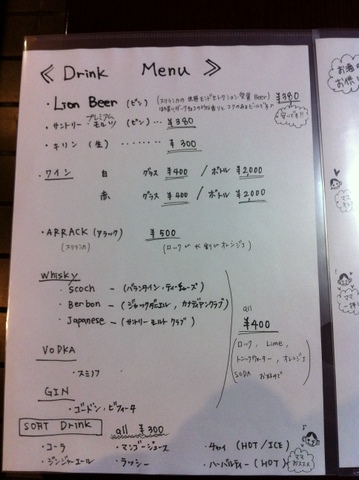 《 Drink Menu 》
・Lion Beer (ビン) (スリランカの Beer) ¥380
・サントリー プレミアム モルツ (ビン)… ¥380
・キリン (生)……… ¥300
・ワイン 白 グラス ¥400 / ボトル ¥2,000
赤 グラス ¥400 / ボトル ¥2,000
・ARRACK (アラック) ¥500
(スリランカ) (ロック オレンジ)
Whisky
・Scoch – (バランタイン・ティーチャーズ)
・Berbon – (ジャックダニエル、カナディアンクラブ)
・Japanese – (サントリー モルト クラブ)
all
¥400
(ロック, Lime,
トニックウォーター, オレンジ
SODA
VODKA
・スミノフ
GIN
・ゴードン・ビフィータ
SORT Drink all ¥300
・コーラ ・マンゴージュース ・チャイ (HOT/ICE)
・ジンジャーエール ・ラッシー ・ハーバルティー (HOT)
ママ
おススメ